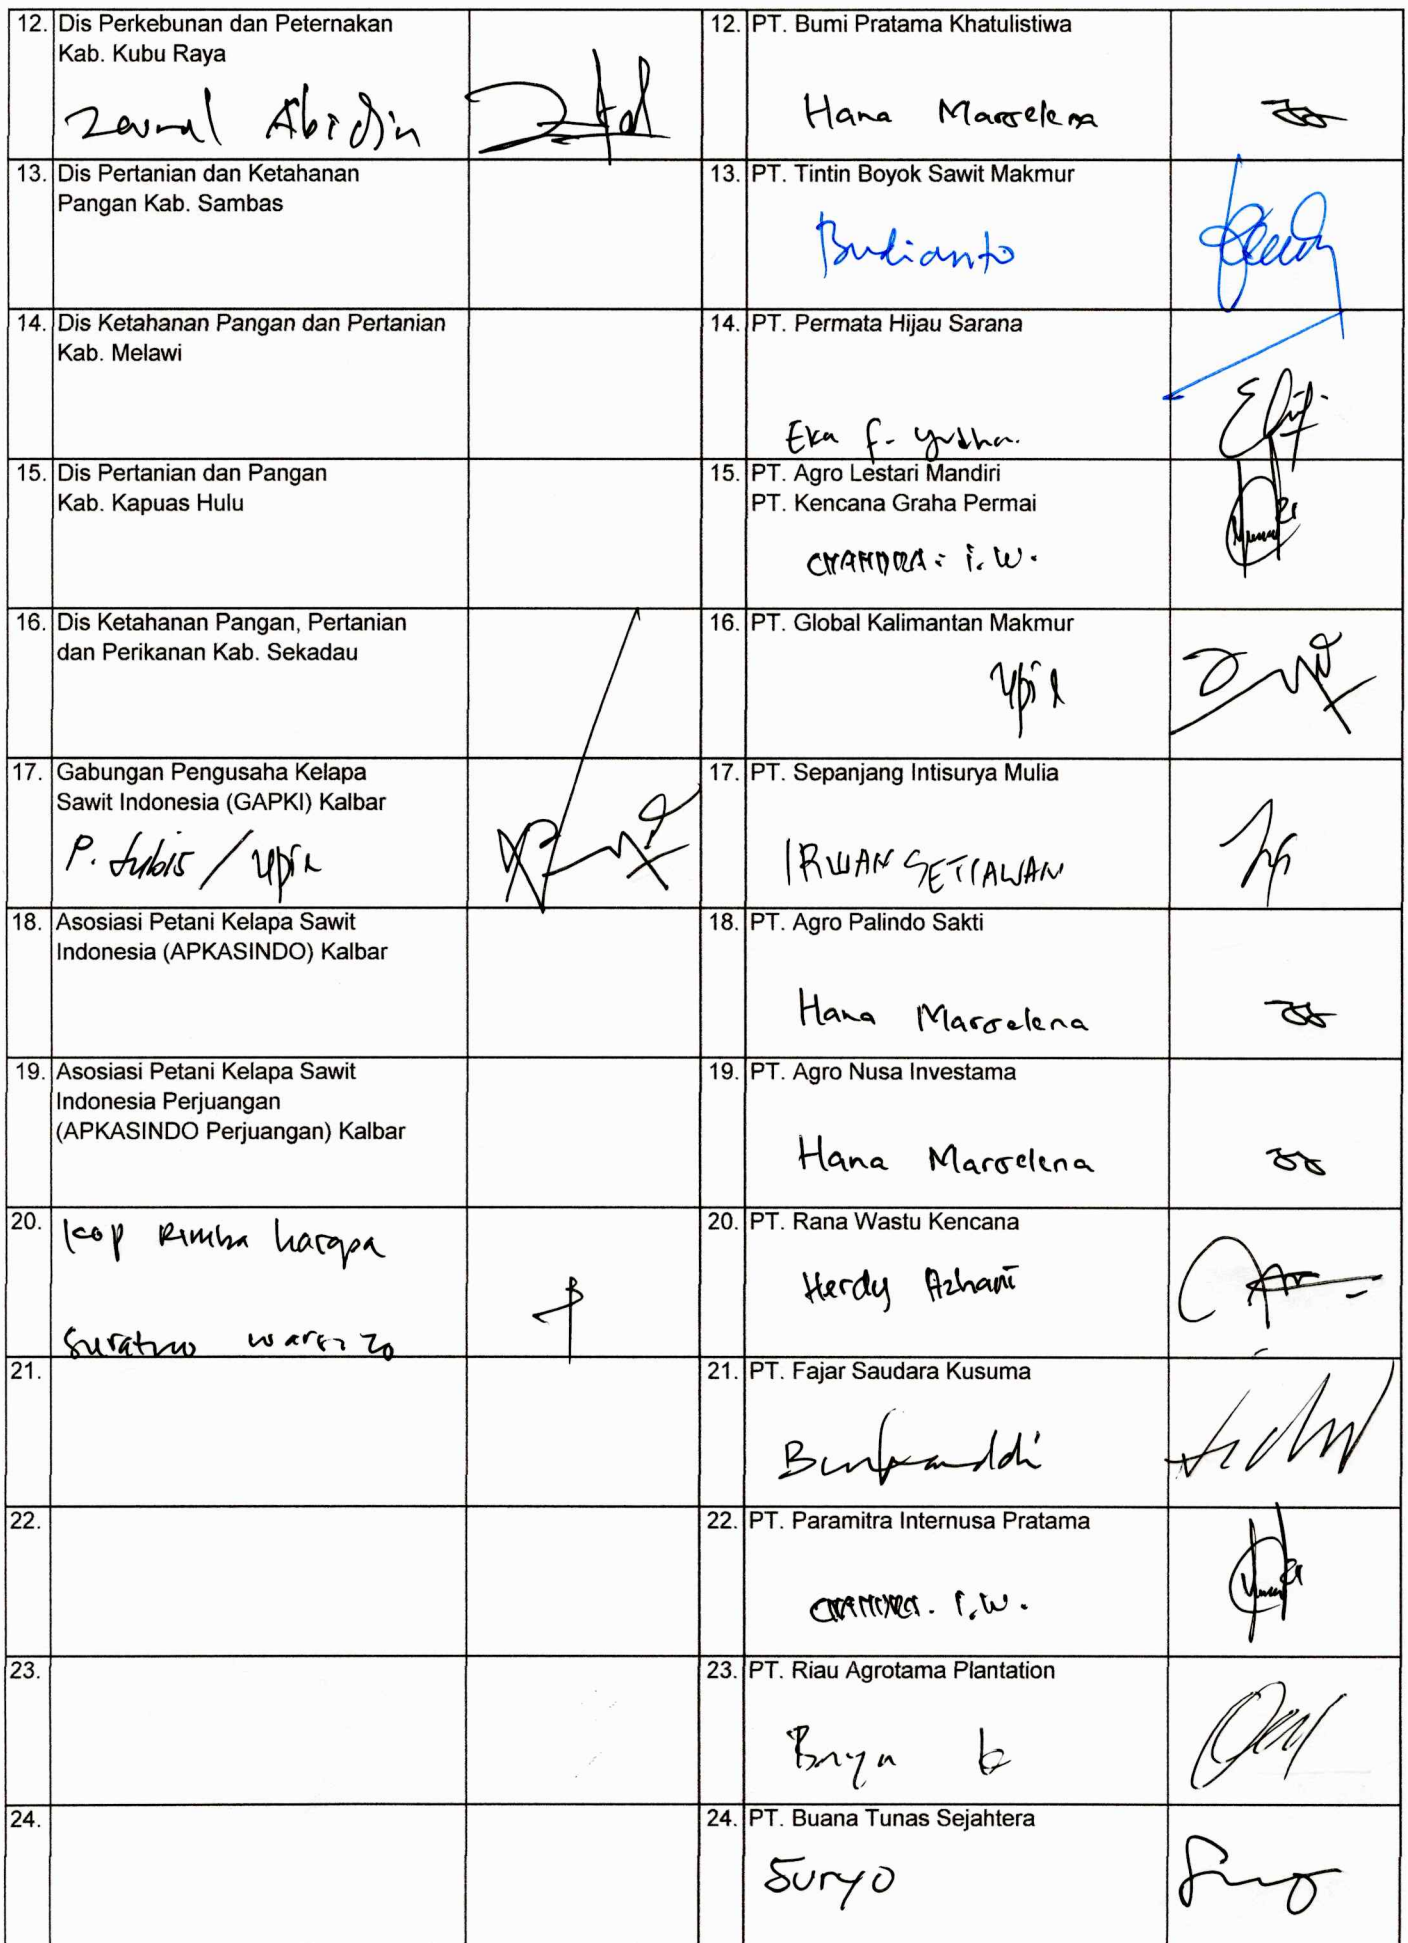 12. Dis Perkebunan dan Peternakan
Kab. Kubu Raya
Abidin
12. PT. Bumi Pratama Khatulistiwa
Hana Marselena
13. Dis Pertanian dan Ketahanan
Pangan Kab. Sambas
13. PT. Tintin Boyok Sawit Makmur
Budianto
14. Dis Ketahanan Pangan dan Pertanian
Kab. Melawi
14. PT. Permata Hijau Sarana
Eka F. Yudha.
15. Dis Pertanian dan Pangan
Kab. Kapuas Hulu
15. PT. Agro Lestari Mandiri
PT. Kencana Graha Permai
CHANDRA. I.W.
16. Dis Ketahanan Pangan, Pertanian
dan Perikanan Kab. Sekadau
16. PT. Global Kalimantan Makmur
17. Gabungan Pengusaha Kelapa
Sawit Indonesia (GAPKI) Kalbar
P. /
17. PT. Sepanjang Intisurya Mulia
IRWAN SETIAWAN
18. Asosiasi Petani Kelapa Sawit
Indonesia (APKASINDO) Kalbar
18. PT. Agro Palindo Sakti
Hana Marselena
19. Asosiasi Petani Kelapa Sawit
Indonesia Perjuangan
(APKASINDO Perjuangan) Kalbar
19. PT. Agro Nusa Investama
Hana Marselena
20. Kop Rimba harapa
20. PT. Rana Wastu Kencana
Herdy Azhari
21.
21. PT. Fajar Saudara Kusuma
22.
22. PT. Paramitra Internusa Pratama
CHANDRA. I.W.
23.
23. PT. Riau Agrotama Plantation
24.
24. PT. Buana Tunas Sejahtera
Suryo